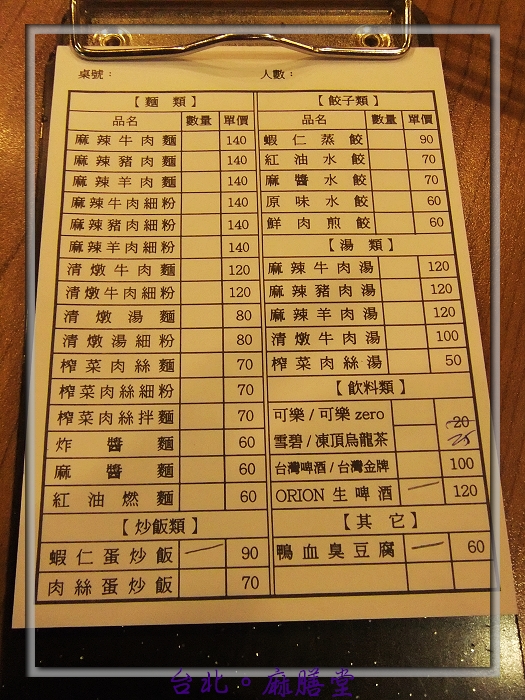 桌號： 人數：
【 麵 類 】
品名 數量 單價
麻辣牛肉麵 140
麻辣豬肉麵 140
麻辣羊肉麵 140
麻辣牛肉細粉 140
麻辣豬肉細粉 140
麻辣羊肉細粉 140
清燉牛肉麵 120
清燉牛肉細粉 120
清燉湯麵 80
清燉湯細粉 80
榨菜肉絲麵 70
榨菜肉絲細粉 70
榨菜肉絲拌麵 70
炸醬麵 60
麻醬麵 60
紅油燃麵 60
【 炒飯類 】
蝦仁蛋炒飯 一 90
肉絲蛋炒飯 70
【 餃子類 】
品名 數量 單價
蝦仁蒸餃 90
紅油水餃 70
麻醬水餃 70
原味水餃 60
鮮肉煎餃 60
【 湯 類 】
麻辣牛肉湯 120
麻辣豬肉湯 120
麻辣羊肉湯 120
清燉牛肉湯 100
榨菜肉絲湯 50
【 飲料類 】
可樂/可樂 zero 20
雪碧/凍頂烏龍茶 25
台灣啤酒/台灣金牌 100
ORION 生啤酒 一 120
【 其 它 】
鴨血臭豆腐 一 60
台北。麻膳堂